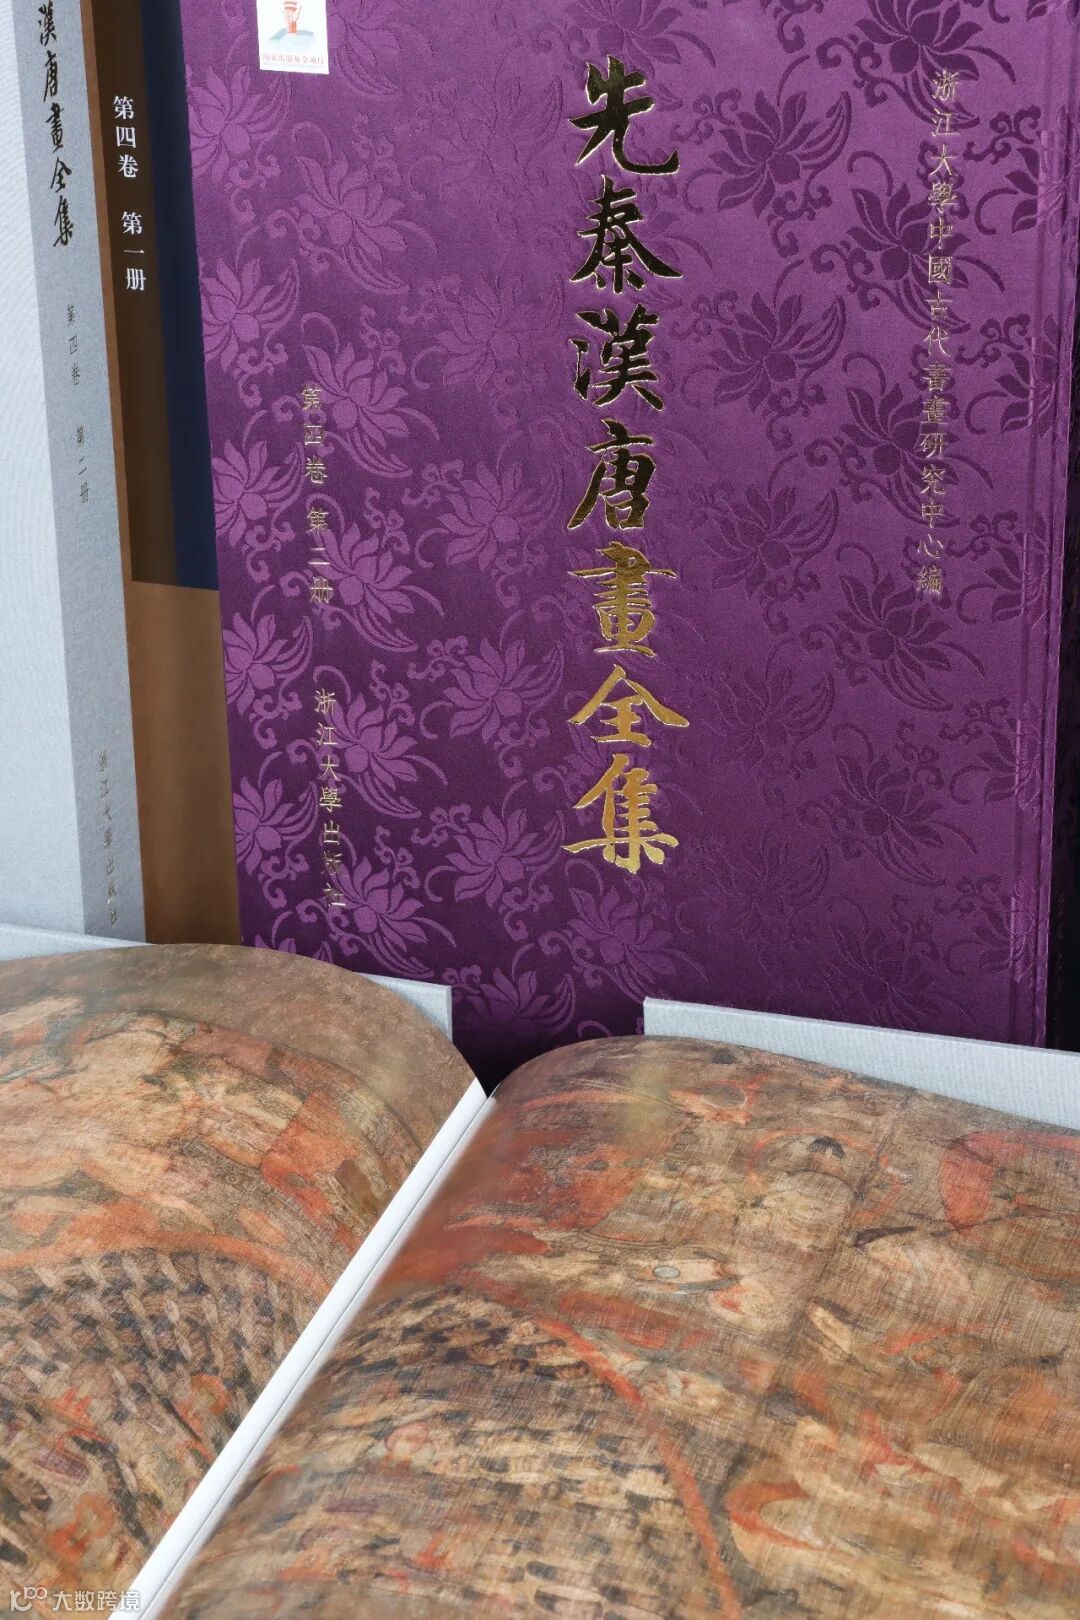 国家出版基金项目
浙江大學中國古代書畫研究中心編
先秦漢唐畫全集
第四卷 第二册
浙江大學出版社
第四卷 第一册
漢唐畫全集
第四卷 第二册
浙江大學出版社
大数跨境